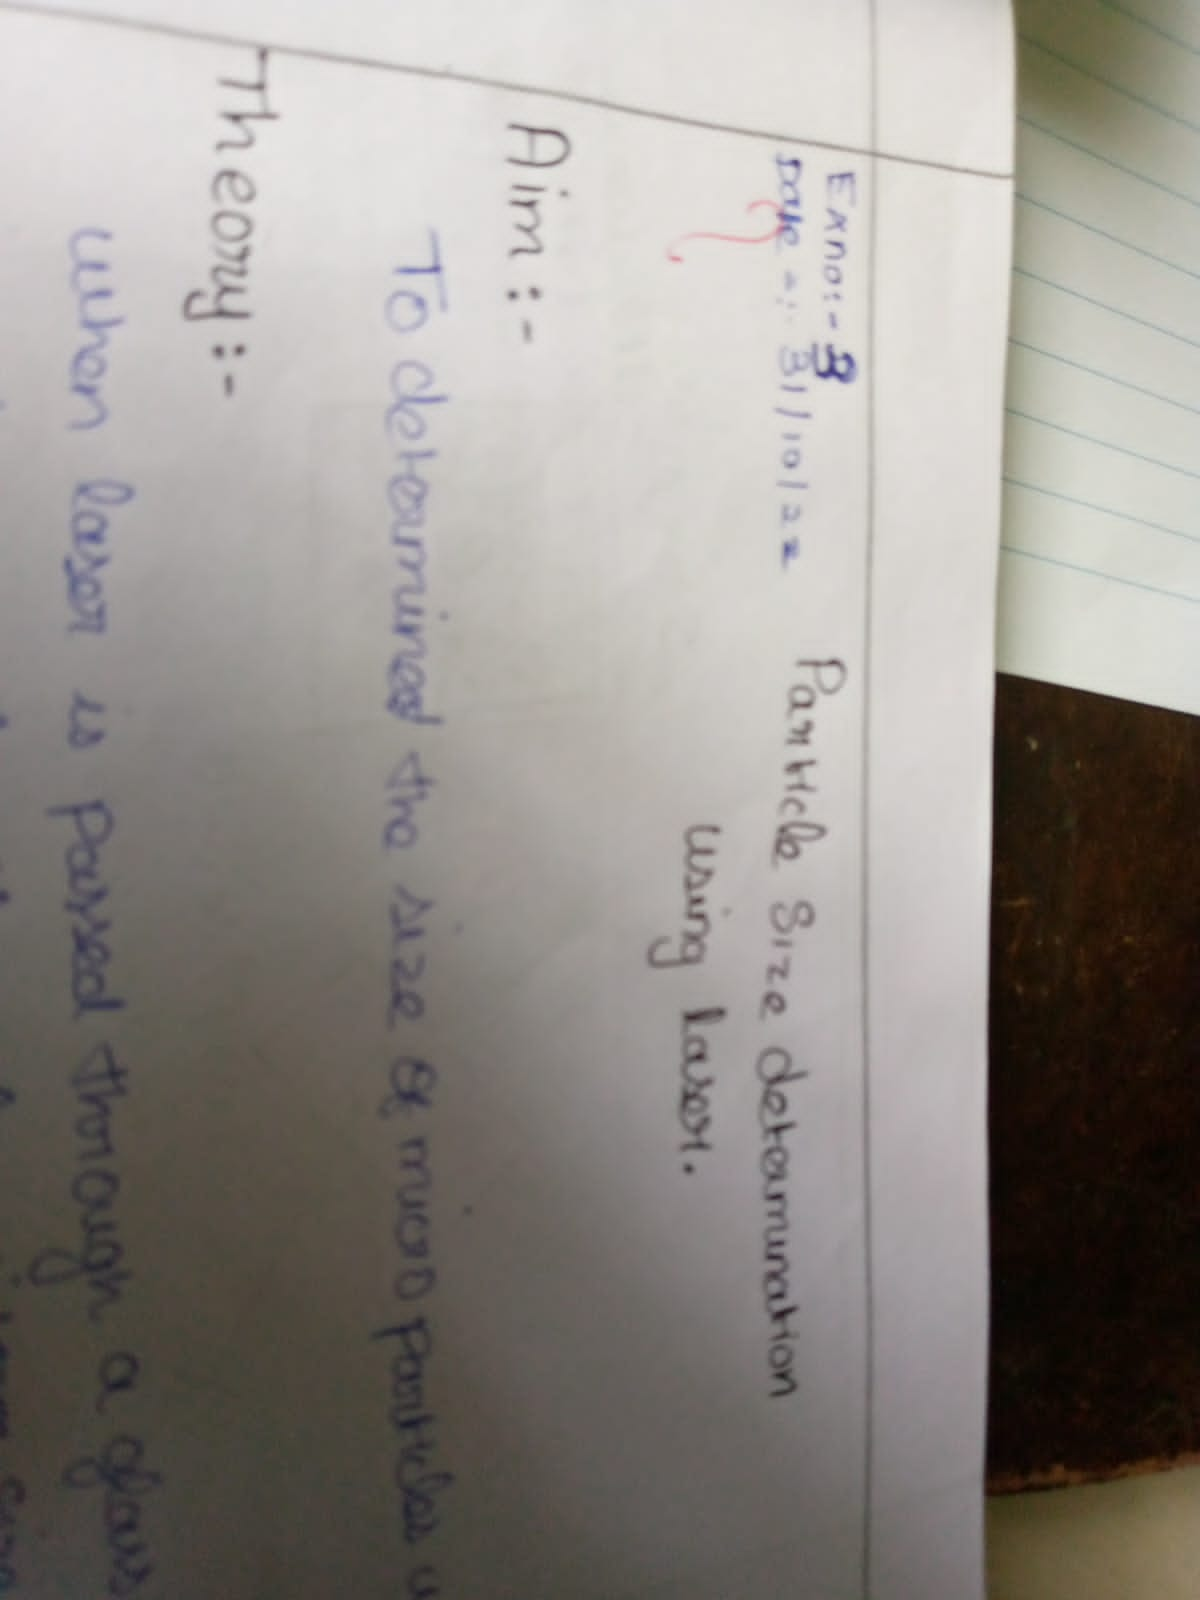 Exno:- 3
Date -: 31/10/22
Particle Size determination
using laser.
Aim :-
To determined the size of micro particles
Theory :-
when laser is passed through a glass